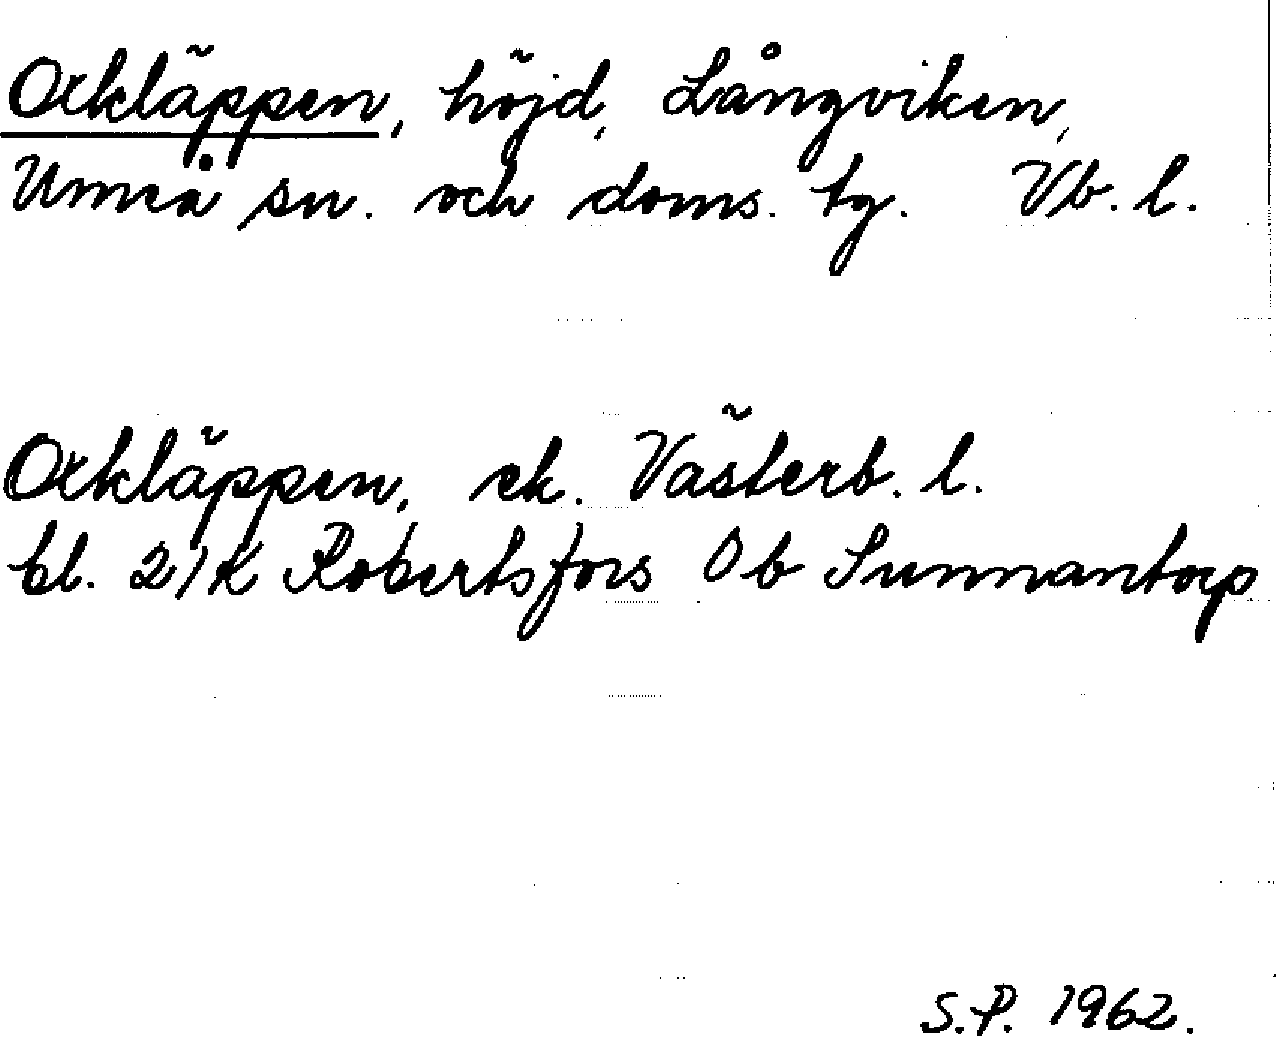 Orkläppen, höjd, Långviken,
Umeå sn. och doms. tg. Vb. l.
Orkläppen, ek. Västerb. l.
bl. 21K Robertsfors Ob Sunnantorp
S.P. 1962.